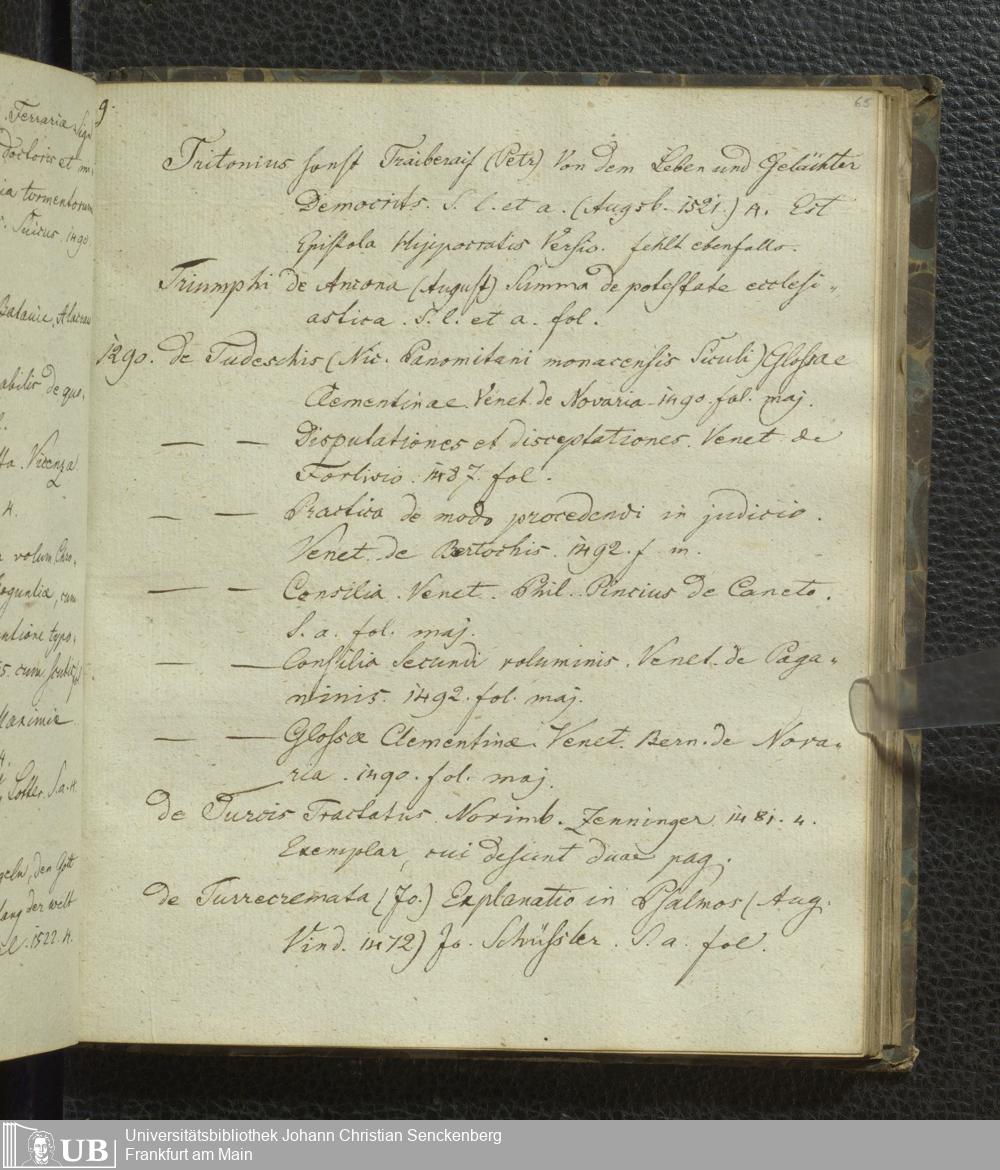 Ferraria. Sig
doctoris et m
ia tormentorum
1490
Batavie, Alacrau
abilis de quo,
Vicenza
4.
volum. Chro,
oguntia, cum
ntione typo,
s. cum
Maximie
4.
Lotter. S. a. 4.
geln, den Gott
fang der welt
1522. 4.
9.
65
Tritonius sonst Traiberaif (Petr) Von dem Leben und Gelächter
Democrits. S. l. et a. (Augsb. 1521.) 4. Est
Epistola Hyppocratis Versio. fehlt ebenfalls.
Triumphi de Ancona (August) Summa de potestate ecclesi„
astica. S. l. et a. fol.
1290. de Tudeschis (Nic. Panomitani monacensis Siculi) Glossae
Clementinae. Venet. de Novaria. 1490. fol. maj.
— — Disputationes et disceptationes. Venet. de
Forlivio. 1487. fol.
— — Practica de modo procedendi in judicio.
Venet. de Bertochis. 1492. f. m.
— — Consilia. Venet. Phil. Pincius de Caneto.
S. a. fol. maj.
— — Consilia Secundi voluminis. Venet. de Paga„
ninis. 1492. fol. maj.
— — Glossæ Clementinæ. Venet. Bern. de Nova„
ria. 1490. fol. maj.
de Turcis Tractatus. Norimb. Zenninger. 1481. 4.
Exemplar, cui desunt duae pag.
de Turrecremata (Jo.) Explanatio in Psalmos (Aug.
Vind. 1472) Jo. Schüssler. S. a. fol.
UB Universitätsbibliothek Johann Christian Senckenberg
Frankfurt am Main